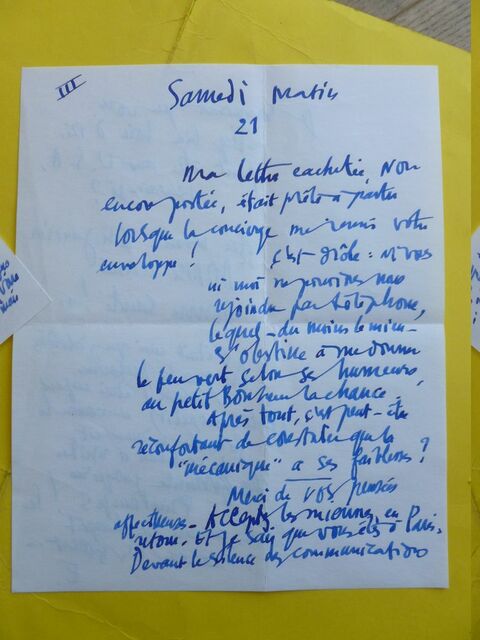 III
Samedi matin
21
Ma lettre cachetée, non
encore portée, était prête à partir
lorsque la concierge me remis votre
enveloppe ! C'est drôle : ni vous
ni moi ne pouvions nous
rejoindre par téléphone,
lequel - du moins le mien -
s'obstine à me donner
le feu vert selon ses humeurs,
au petit Bonheur la chance.
Après tout, c'est peut-être
réconfortant de constater que la
"mécanique" a ses faiblesses ?
Merci de vos pensées
affectueuses - Acceptez les miennes, en
retour. Et je sais que vous êtes à Paris.
Devant le silence des communications